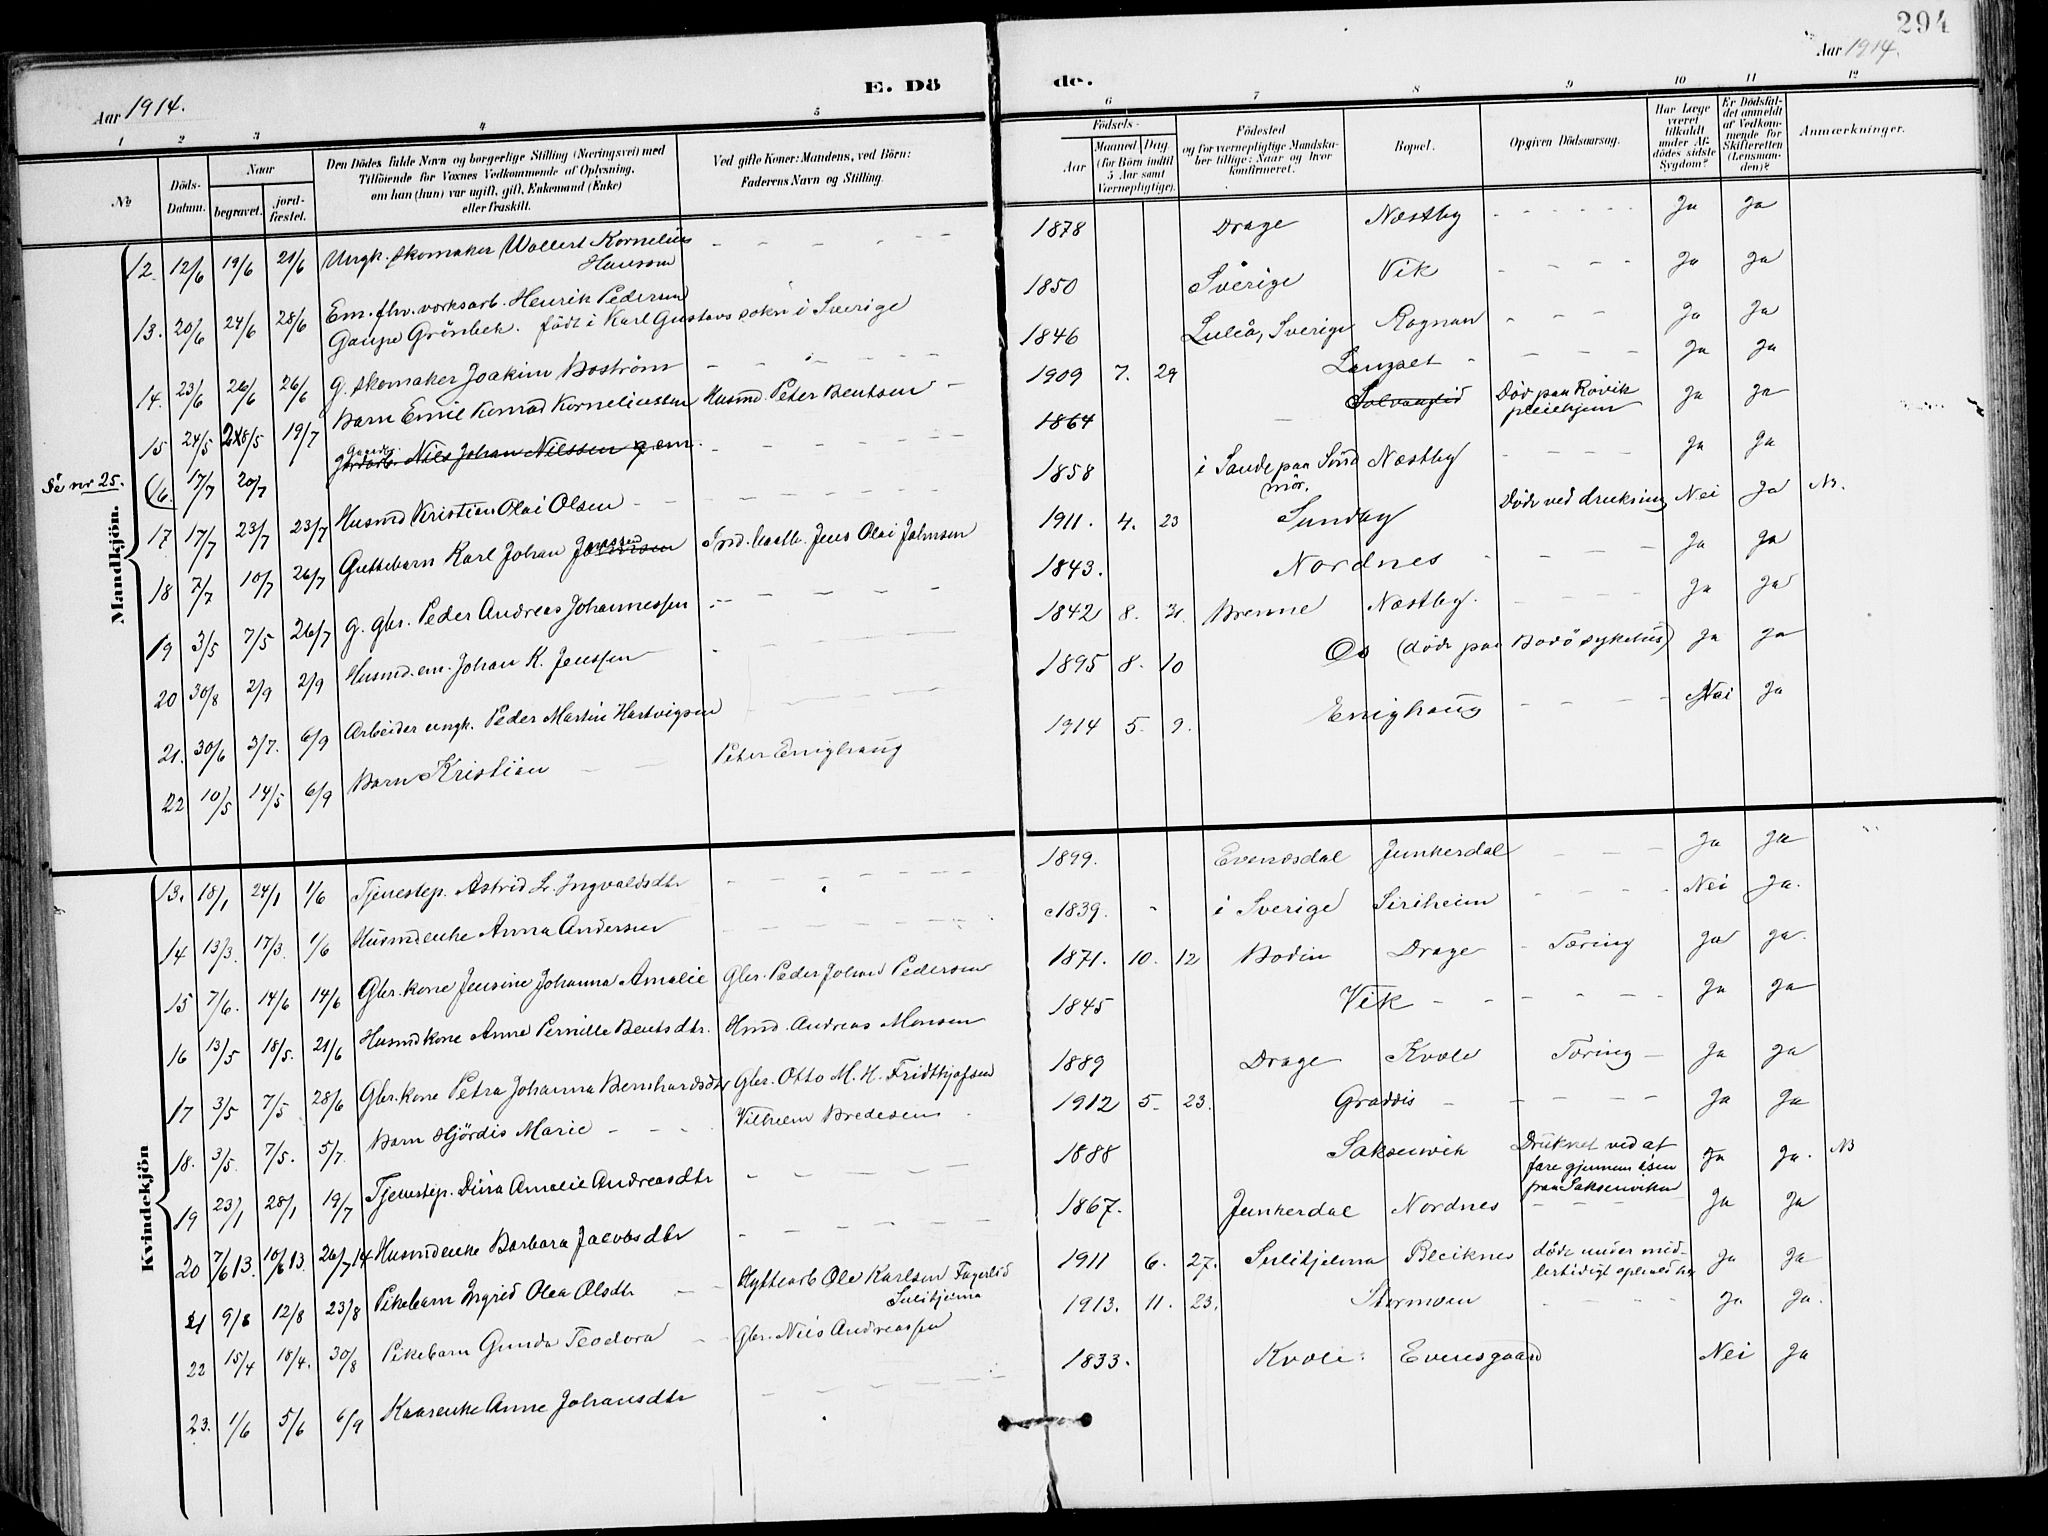 294
Aar 1914.
E. Dö
de.
Aar 1914.
1 2 3 4 5 6 7 8 9 10 11 12
No
Döds-Datum.
Naar
begravet.
jord-fæstet.
Den Dödes fulde Navn og borgerlige Stilling (Næringsvei) med
Tilföiende for Voxnes Vedkommende af Oplysning,
om han (hun) var ugift, gift, Enkemand (Enke)
eller fraskilt.
Ved gifte Koner: Mandens, ved Börn:
Faderens Navn og Stilling.
Födsels-
Aar
Maaned Dag
(for Börn indtil
5 Aar samt
Værnepligtige).
Födested
og for værnepligtige Mandska-
ber tillige: Naar og hvor
konfirmeret.
Bopæl.
Opgiven Dödsaarsag.
Har Læge
været
tilkaldt
under Af-
dödes sidste
Sygdom?
Er Dödsfal-
det anmeldt
af Vedkom-
mende for
Skifteretten
(Lensman-
den)?
Anmærkninger.
Mandkjön.
12. 12/6 19/6 21/6 Ungk. skomaker Wallert Kornelius Hansen 1878 Drage Næstby Ja Ja
13. 20/6 24/6 28/6 Em. fhv. verksarb. Henrik Pedersen
Gaupe Grönbek. födt i Karl Gustavs sokn i Sverige 1850 Sverige Vik Ja Ja
14. 23/6 26/6 26/6 g. skomaker Joakim Boström 1846 Luleå, Sverige Rognan Ja Ja
15 24/5 28/5 19/7 Barn Emil Konrad Korneliussen Husmd. Peter Bentsen 1909 7. 29 Ja Ja
Se nr 25. 16. 17/7 20/7 Gaardr. Nils Johan Nilssen g. em. 1864 Död paa Røvik pleiehjem Ja Ja
17 17/7 23/7 23/7 Husmd Kristian Olai Olsen 1858 i Sande paa Sönd mör. Næstby Ja Ja
18 7/7 10/7 26/7 Guttebarn Karl Johan Jenssen Jens Olai Johnsen 1911. 4. 23 Sundby Döde ved drukning Nei Ja NB.
19 3/5 7/5 26/7 g. gbr. Peder Andreas Johannessen 1843. Nordnes Ja Ja
20 30/8 2/9 2/9 Husmd. em. Johan K. Jenssen 1842 8. 31. Brenne Næstby. Ja Ja
21. 30/6 3/7. 6/9 Arbeider ungk. Peder Martin Hartvigsen 1895 8. 10 Os (döde paa Bodö sykehus) Ja Ja
22 10/5 14/5 6/9 Barn Kristian Peter Enighaug 1914 5. 9. Enighaug Nei Ja
Kvindekjön
13. 18/1 24/1 1/6 Tjenestep. Astrid L. Ingvaldsdtr 1899. Evenesdal Junkerdal Ja Ja
14 13/3. 17/3. 1/6 Husmdenke Anna Andersen c1839. i Sverige Siriheim Nei Ja.
15 7/6. 14/6 14/6 Gbr. kone Jensine Johanna Amalie Gbr. Peder Johan Pedersen 1871. 10. 12 Bodin Drage Tæring Ja Ja.
16 13/5 18/5. 21/6 Husmdkone Anne Pernille Bentsdtr. Hmd. Andreas Monsen 1845 Vik Ja Ja
17 3/5 7/5 28/6 Gbr. kone Petra Johanna Bernhardsdtr Gbr. Otto M. H. Fridthjofsen 1889 Drage Kvæle Tæring Ja Ja
18. 3/5. 7/5. 5/7. Barn Hjördis Marie Vilhelm Bredesen 1912 5. 23. Graddis Ja Ja
19 23/1 28/1 19/7 Tjenestep. Dina Amalie Andreasdtr 1888 Saksenvik Druknet ved at
fare gjennem isen
paa Saksenvikvn Ja Ja. NB
20 7/6 13. 10/6 13. 26/7 14 Husmdenke Barbara Jacobsdtr 1867. Junkerdal Nordnes Ja Ja
21 9/8 12/8 23/8 Pikebarn Ingrid Olea Olsdtr Hyttearb Ole Karlsen Fagerlid
Sulitjelma 1911 6. 27. Sulitjelma Bleiknes döde under mid-
lertidigt ophold her Ja Ja
22 15/4 18/4. 30/8 Pikebarn Gunda Teodora Gbr. Nils Andreassen 1913. 11. 23. Stormoen Ja Ja.
23. 1/6 5/6 6/9 Kaarenke Anne Johansdtr 1833. Kvæle. Evensgaard Nei Ja